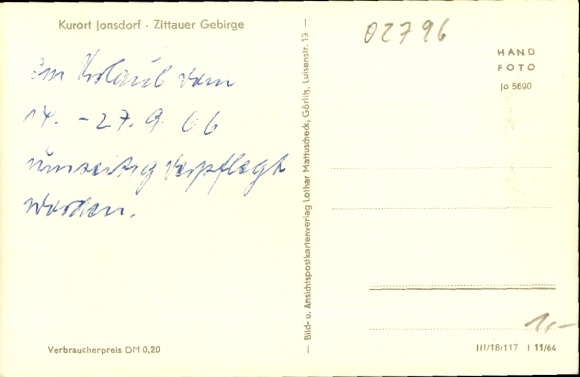 Kurort Jonsdorf · Zittauer Gebirge
02796
HAND
FOTO
Jo 5690
Im Urlaub vom
14. - 27. 9. 66
umseitig verpflegt
worden.
Bild- u. Ansichtspostkartenverlag Lothar Mattuscheck, Görlitz, Luisenstr. 19
1,-
Verbraucherpreis DM 0,20
III/18/117 I 11/64